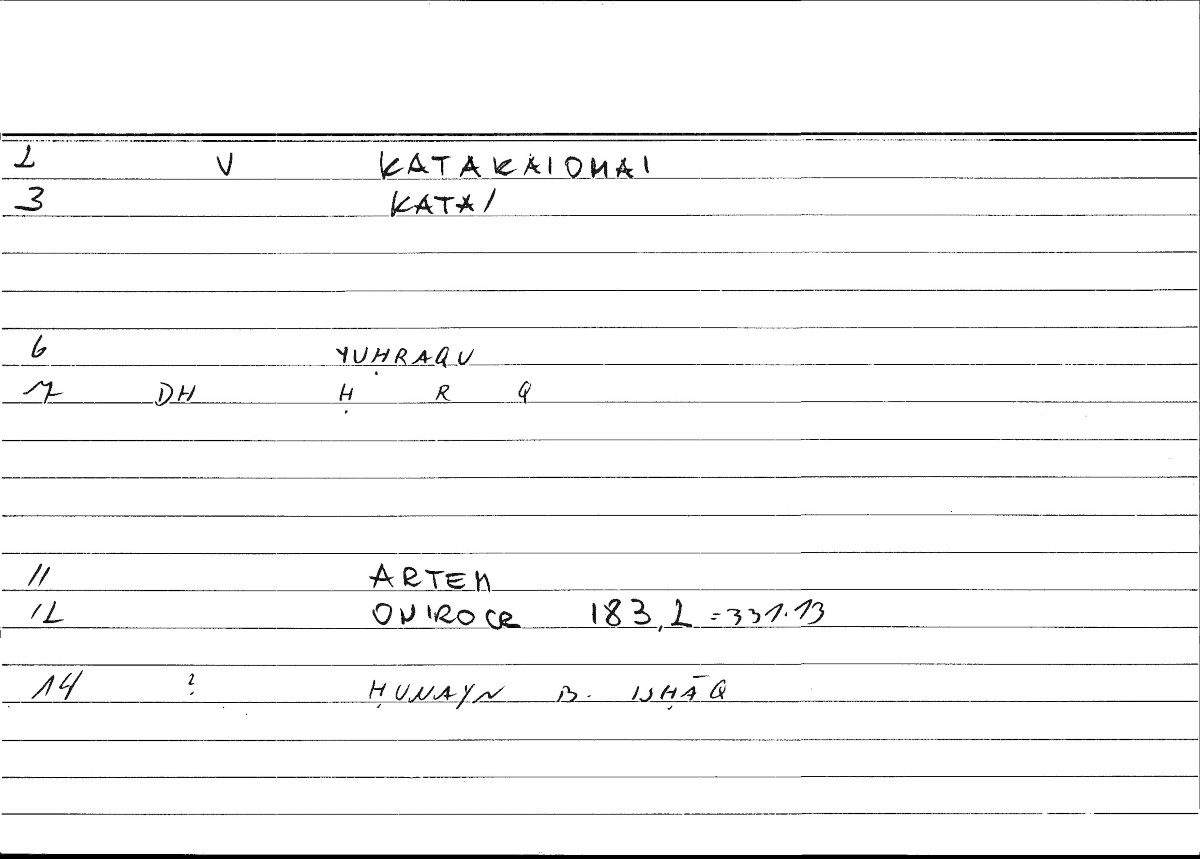 2 V KATAKAIOMAI
3 KATAI
6 YUḤRAQU
7 DH Ḥ R Q
11 ARTEM
12 ONIROCR 183,2 =331.13
14 ? ḤUNAYN B. ISḤĀQ